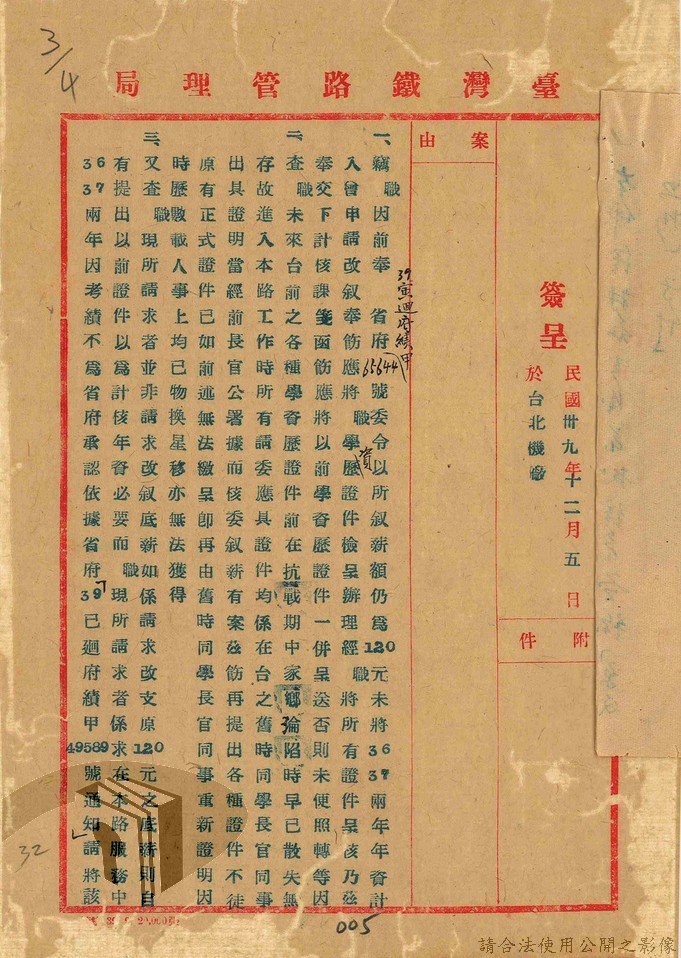 3/4
臺灣鐵路管理局
簽呈
民國卅九年十二月五日
於台北機廠
附件
案由
一、竊職因前奉 省府39寅迴府績甲65644號委令以所叙薪額仍爲120元未將36 37兩年年資計
入曾申請改叙奉筋應將職學資歷證件檢呈辦理經職將所有證件呈核乃茲
奉交下計核課箋函筋應將以前學資歷證件一併呈送否則未便照轉等因
二、查職未來台前之各種學資歷證件前在抗戰期中家鄉淪陷時早已散失無
存故進入本路工作時所有請委應具證件均係在台之舊時同學長官同事
出具證明當經前長官公署據而核委叙薪有案茲筋再提出各種證件不徒
原有正式證件已如前述無法繳呈卽再由舊時同學長官同事重新證明因
時歷數載人事上均已物換星移亦無法獲得
三、又查職現所請求者並非請求改叙底薪如係請求改支原120元之底薪則自
有提出以前證件以爲計核年資必要而職現所請求者係求在本路服務中
36 37兩年因考績不爲省府承認依據省府「39已迴府績甲49589號通知」請將該
32
005
請合法使用公開之影像